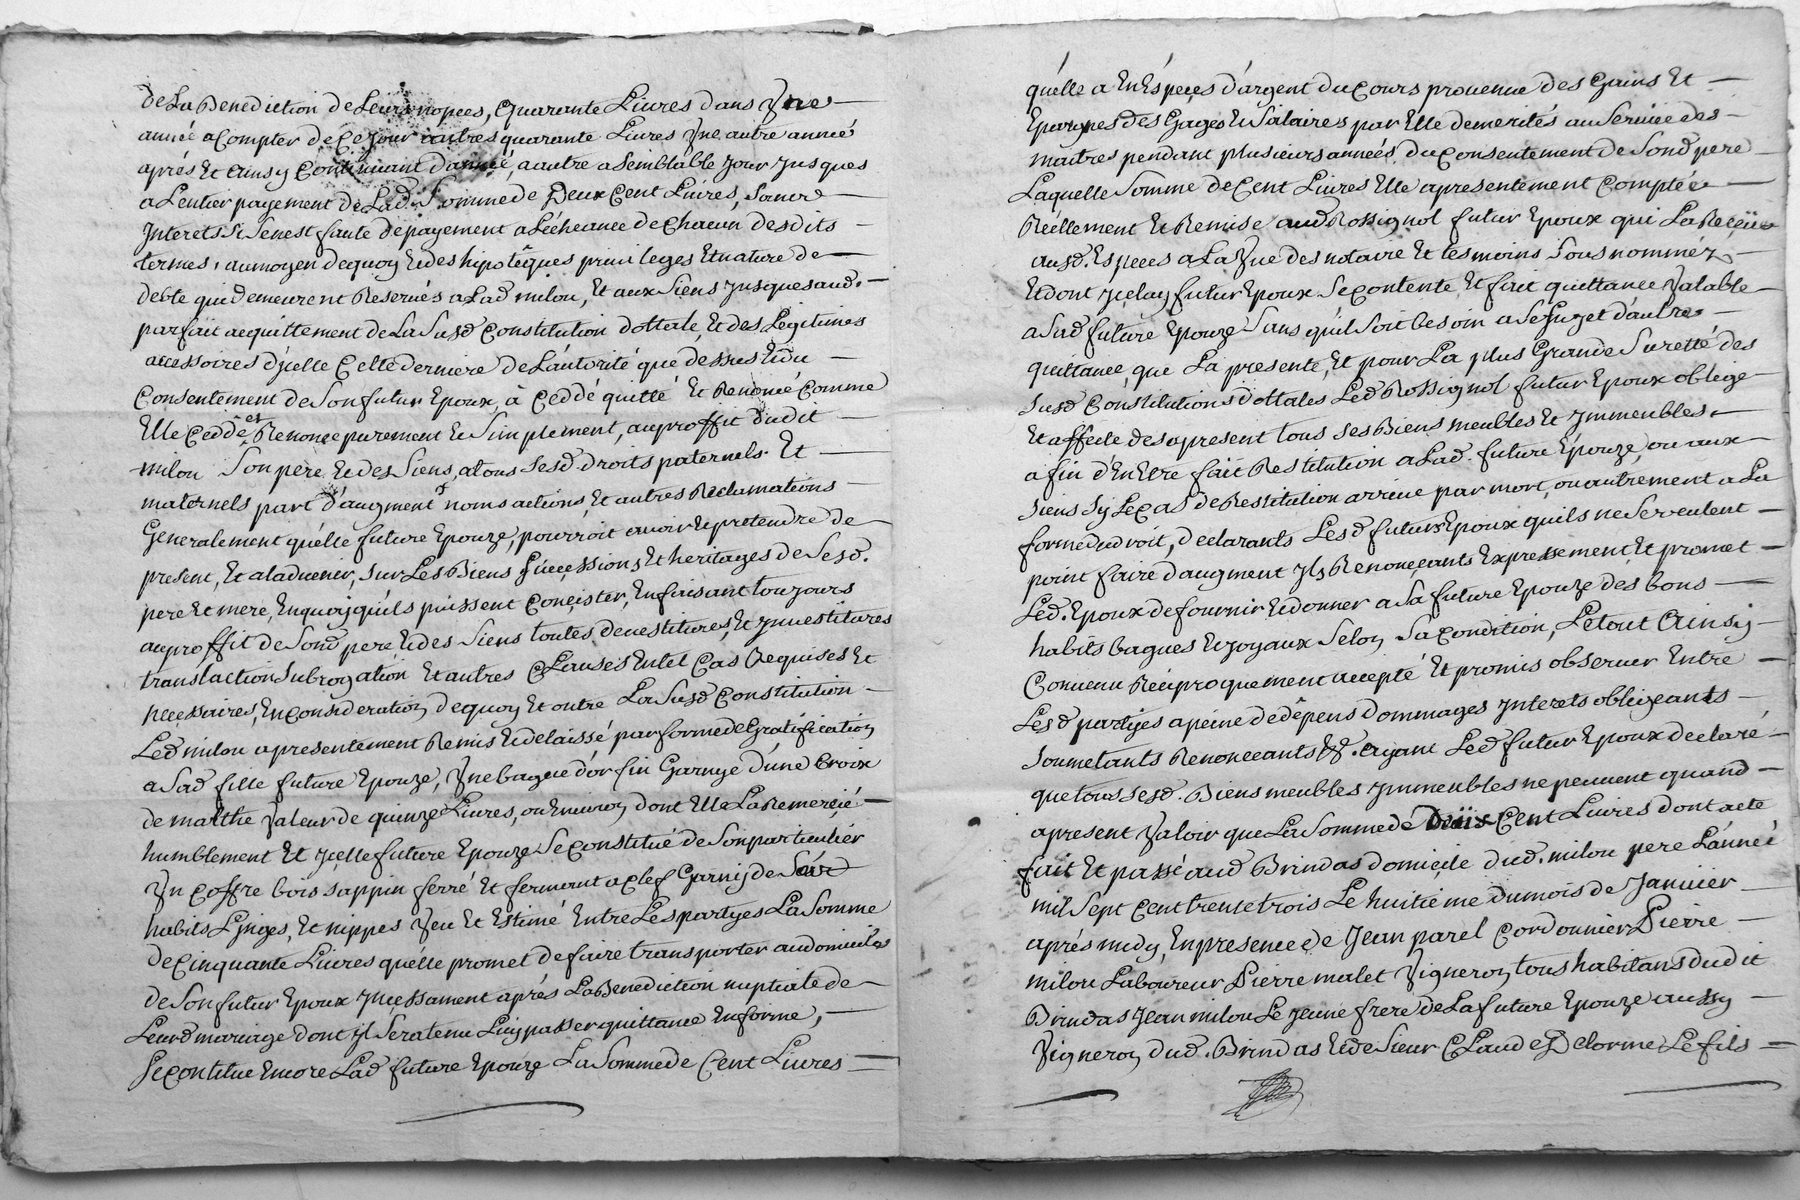 de La Benediction de Leurs nopces, Quarante Livres dans Une
année a Compter de Ce Jour autres quarante Livres Une autre année
aprés Et ainsy Continuant d'année, a autre a Semblable Jour Jusques
a L'entier payement de Lad. Somme de Deux Cent Livres, Sans
Interets Si Senest faute de payement a Lécheance de Chacun desdits
termes, aumoyen dequoy Et des hipotêques privileges Et nature de
debte qui demeurent Reservés a Lad milou, Et aux Siens Jusques aud.
parfait acquittement de La Susd Constitution dottale, Et des Légitimes
accessoires d'ycelle Cette derniere de L'autorité que dessus Et du
Consentement de Son futur Epoux, à Ceddé quitté Et Renoncé Comme
Elle Cedde et Renonce purement Et Simplement, au proffit dudit
milou Son pere Et des Siens, atous Sesd droits paternels Et
maternels part d'augment noms actions, Et autres Reclamations
Generalement qu'élle future Epouze, pourroit avoir Et pretendre de
present, Et a ladvener, Sur Les Biens Successions Et heritages de Sesd.
pere Et mere, En quoy qu'ils puissent Conçister, En faisant toujours
au proffit de Sond pere Et des Siens toutes devestitures, Et Jnvestitures
translaction Subrogation Et autres Clauses En tel Cas Requises Et
neçessaires, En Consideration dequoy Et outre La Susd Constitution
Led milou apresentement Remis Et delaissé par forme de Gratification
a Sad fille future Epouze, Une bague d'or fin Garnye d'une Croix
de malthe Valeur de quinze Livres, ou Environ dont Elle L'a Remerçié
humblement Et ycelle future Epouze Se Constitué de Son particulier
Un Coffre bois Sappin ferré Et fermant a Clef Garny de Ses
habits Linges, Et nippes Veu Et Estimé Entre Les partyes La Somme
de Cinquante Livres qu'élle promet de faire transporter au domicile
de Son futur Epoux Jnçessament aprés La Benediction nuptiale de
Leurd mariage dont Jl Sera tenu Luy passer quittance En forme,
Se Contitue Encore Lad future Epouze La Somme de Cent Livres
qu'élle a En Espéçes d'argent du Cours provenue des Gains Et
Eparynes des Gages Et Salaires par Elle demerités au Service des
maitres pendant plusieurs années du Consentement de Sond pere
Laquelle Somme de Cent Livres Elle apresentement Comptée
Réellement Et Remise aud Rossignol futur Epoux qui L'a Reçüe
ausd. Especes a La Vue des notaire Et tesmoins Sous nommez
Et dont Jçeluy futur Epoux Se Contente Et fait quittance Valable
a Sad future Epouze Sans qu'il Soit besoin a Se Sujet d'autre
quittance, que La presente, Et pour La plus Grande Suretté des
Susd Constitutions dottales Led Rossignol futur Epoux oblege
Et affecte des apresent tous Ses Biens meubles Et Jmmeubles
a fin d'En Etre fait Restitution a Lad. future Epouze, ou aux
Siens Sy Le Cas de Restitution arrive par mort, ou autrement a La
forme du droit, declarants Lesd futurs Epoux quils ne Se veulent
point faire d'augment Jls Renonçants Expressement, Et promet
Led. Epoux de fournir Et donner a Sa future Epouze des bons
habits bagues Et Joyaux Selon Sa Condition, Le tout Ainsy
Convenu Réciproquement accepté Et promis observer Entre
Lesd partyes a peine de dêpens Dommages Jnterets obligeants
Soumetants Renonceants &. Ayant Led futur Epoux declaré
que tous Sesd. Biens meubles Jmmeubles ne peuvent quand
apresent Valoir que La Somme de Cent Livres dont acte
fait Et passé aud Brindas domicile dud. milou pere L'année
mil Sept Cent trente trois Le huitiéme du mois de Janvier
aprés midy, En presence de Jean parel Cordonnier Pierre
milou Laboureur Pierre malet Vigneron tous habitans dudit
Brindas Jean milou Le Jeune frere de La future Epouze aussy
Vigneron dud. Brindas Et de Sieur Claude Delorme Le fils